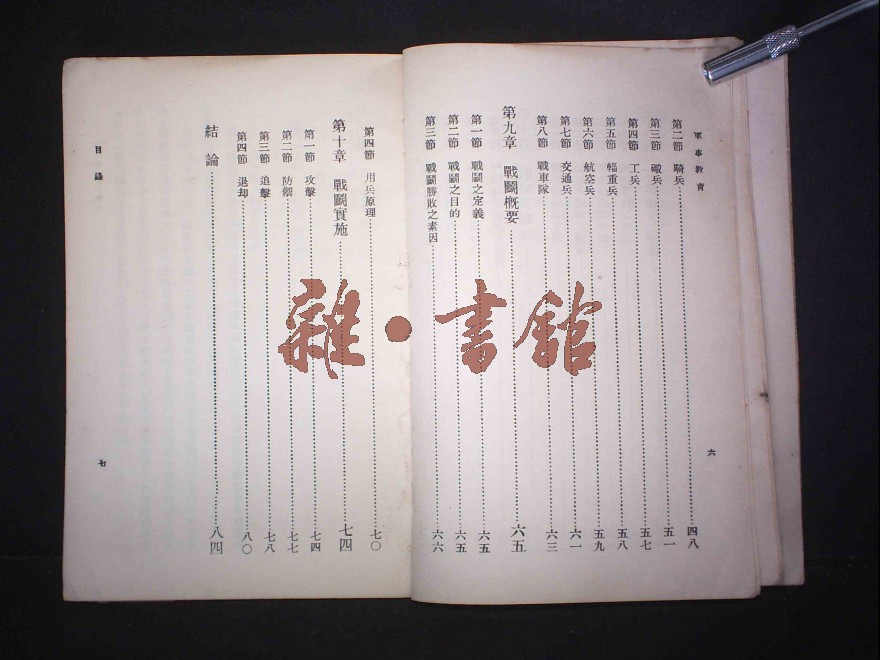 軍事教育
第二節 騎兵 四八
第三節 礮兵 五一
第四節 工兵 五七
第五節 輜重兵 五八
第六節 航空兵 五九
第七節 交通兵 六一
第八節 戰車隊 六三
第九章 戰鬭概要 六五
第一節 戰鬭之定義 六五
第二節 戰鬭之目的 六五
第三節 戰鬭勝敗之素因 六六
六
第四節 用兵原理 七〇
第十章 戰鬭實施 七四
第一節 攻擊 七四
第二節 防禦 七七
第三節 追擊 七八
第四節 退却 八〇
結論 八四
目錄
七
雜·書館